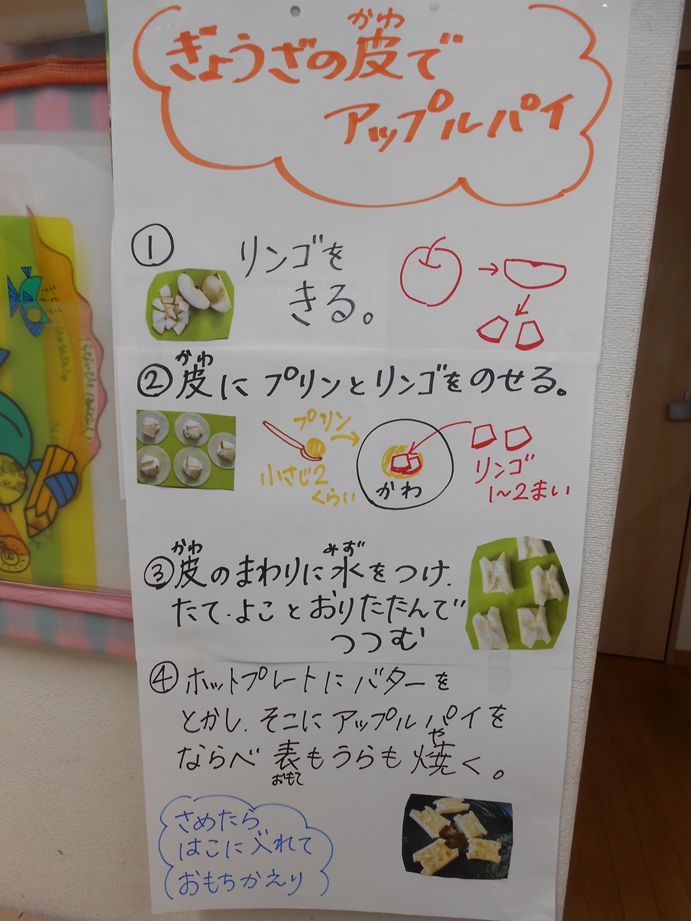 かわ
ぎょうざの皮で
アップルパイ
① リンゴを
きる。
かわ
②皮にプリンとリンゴをのせる。
プリン
小さじ2
くらい
かわ
リンゴ
1〜2まい
かわ みず
③皮のまわりに水をつけ.
たて.よことおりたたんで
つつむ
④ホットプレートにバターを
とかし.そこにアップルパイを
や
ならべ 表もうらも焼く。
おもて
さめたら
はこに入れて
おもちかえり